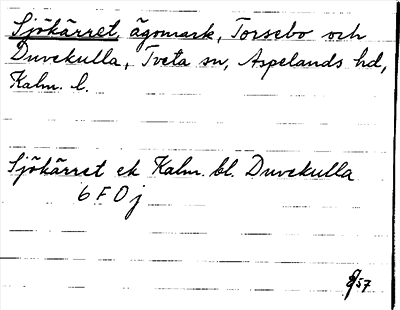 Sjökärret, ägomark, Torsebo och
Duvekulla, Tveta sn, Aspelands hd,
Kalm. l.
Sjökärret ek Kalm. bl. Duvekulla
6 F 0 j
57